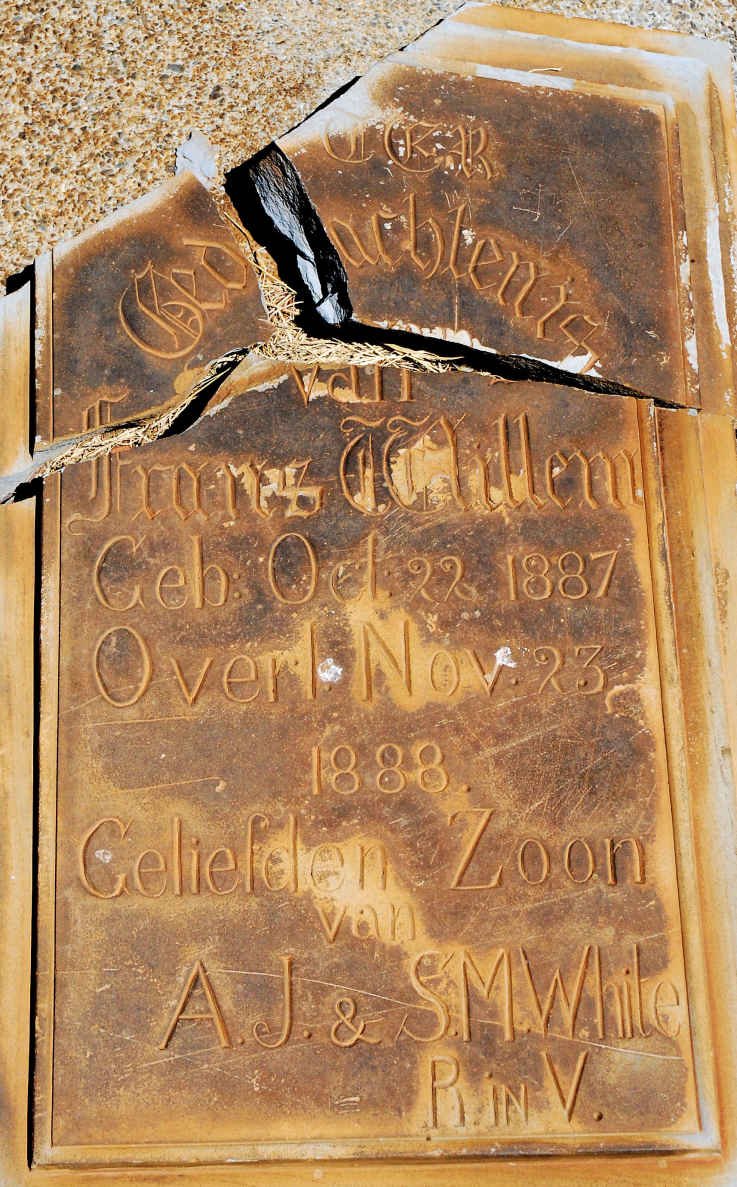 TER
Gedachtenis
van
Frans Willem
Geb: Oct: 22 1887
Overl. Nov. 23
1888.
Geliefden Zoon
van
A.J. & S.M. White
R in V.